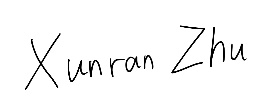 Xunran Zhu